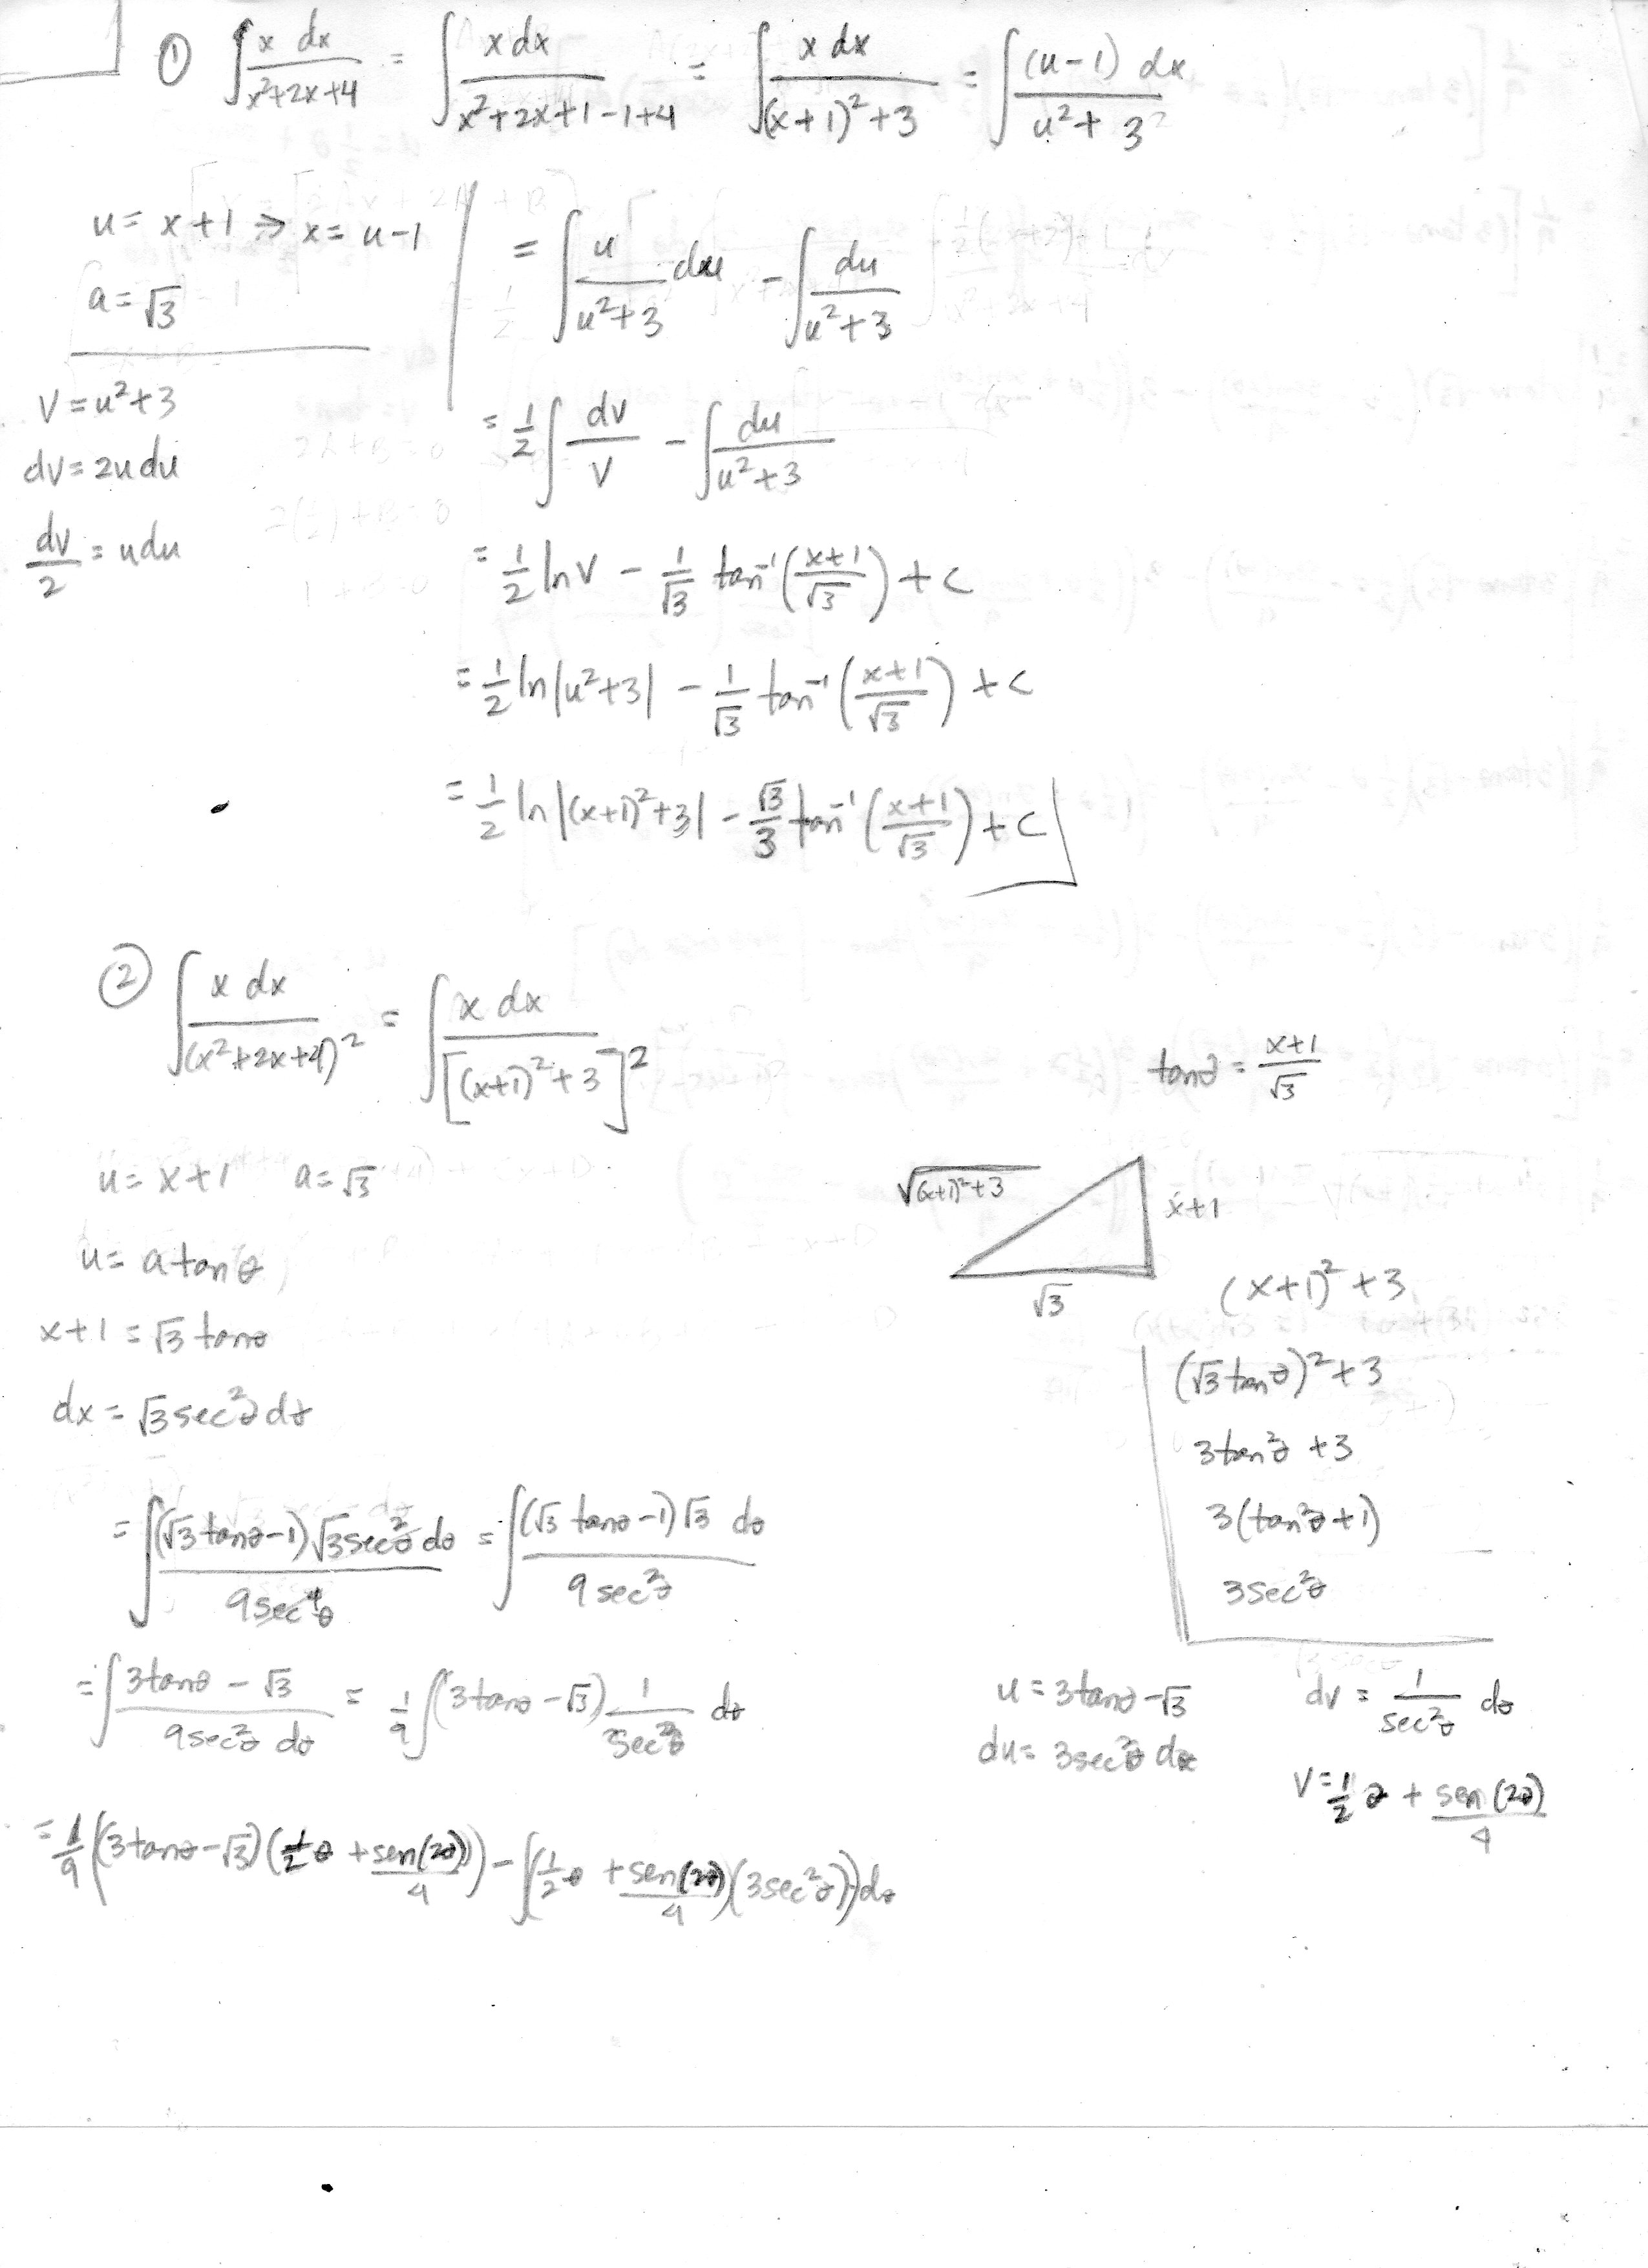 ① ∫ x dx / (x²+2x+4) = ∫ x dx / (x²+2x+1-1+4) = ∫ x dx / ((x+1)²+3) = ∫ (u-1) dx / (u²+3)
u = x+1 ⇒ x = u-1
a = √3
= ∫ u / (u²+3) du - ∫ du / (u²+3)
v = u²+3
dv = 2u du
dv/2 = u du
= 1/2 ∫ dv/v - ∫ du / (u²+3)
= 1/2 ln v - 1/√3 tan⁻¹((x+1)/√3) + c
= 1/2 ln|u²+3| - 1/√3 tan⁻¹((x+1)/√3) + c
= 1/2 ln|(x+1)²+3| - √3/3 tan⁻¹((x+1)/√3) + c
② ∫ x dx / (x²+2x+4)² = ∫ x dx / [(x+1)²+3]²
tanθ = (x+1)/√3
u = x+1 a = √3
u = a tanθ
x+1 = √3 tanθ
dx = √3 sec²θ dθ
√((x+1)²+3)
x+1
√3
(x+1)²+3
(√3 tanθ)²+3
3tan²θ +3
3(tan²θ+1)
3sec²θ
= ∫ (√3 tanθ-1) √3 sec²θ dθ / 9sec⁴θ = ∫ (√3 tanθ-1) √3 dθ / 9 sec²θ
= ∫ 3tanθ - √3 / 9sec²θ dθ = 1/9 ∫ (3tanθ-√3) 1/sec²θ dθ
u = 3tanθ-√3 dv = 1/sec²θ dθ
du = 3sec²θ dθ
v = 1/2 θ + sen(2θ)/4
= 1/9 ((3tanθ-√3)(1/2 θ + sen(2θ)/4) - ∫(1/2 θ + sen(2θ)/4)(3sec²θ))dθ